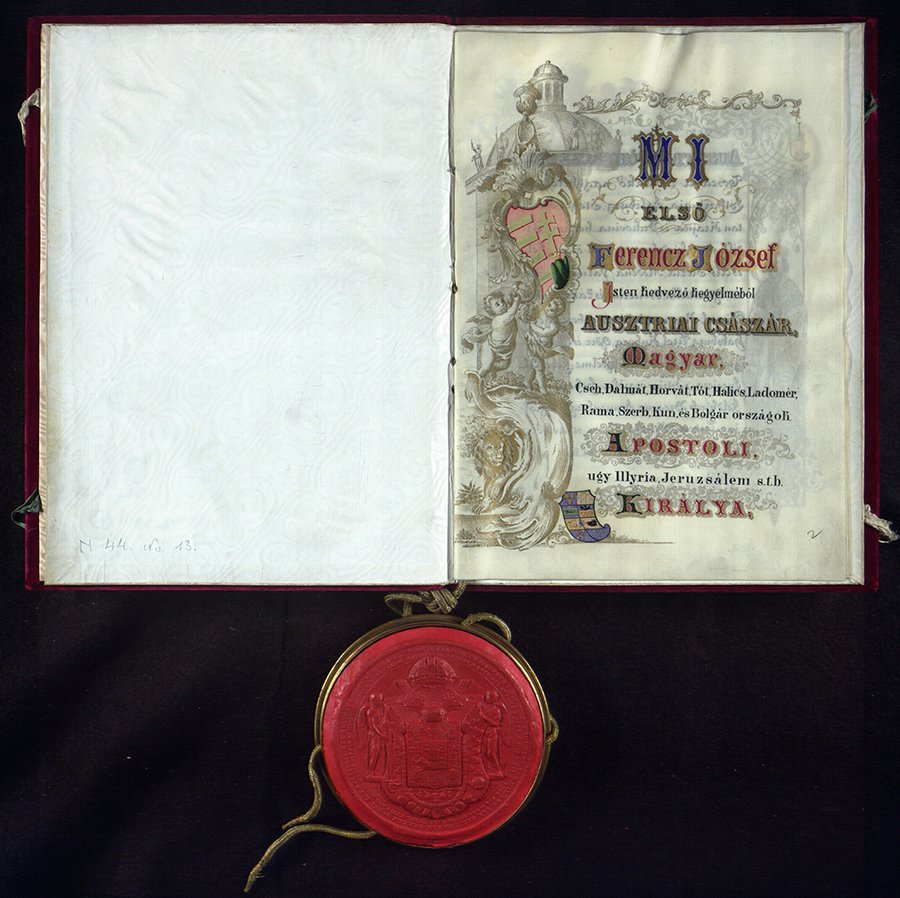 MI
ELSŐ
Ferencz József
Isten kedvező kegyelméből
AUSZTRIAI CSÁSZÁR,
Magyar,
Cseh, Dalmát, Horvát, Tót, Halics, Ladomér,
Rama, Szerb, Kun, és Bolgár országok
APOSTOLI,
ugy Illyria, Jeruzsálem s.t.b.
KIRÁLYA,
N 44. 13.
2